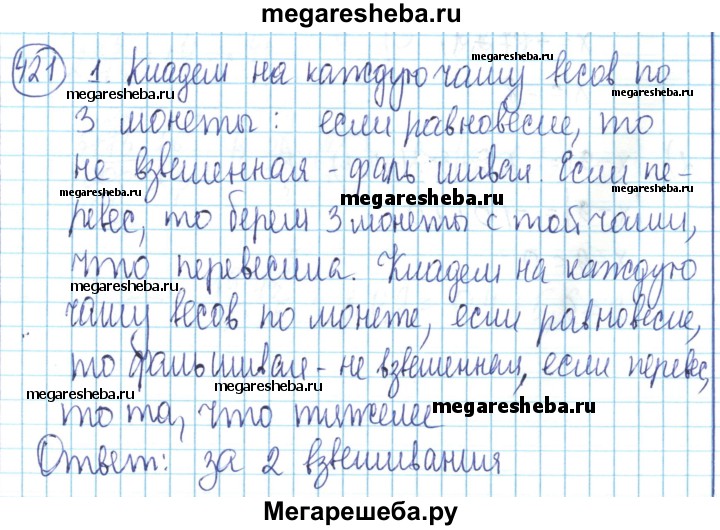 megaresheba.ru
421 1. Кладем на каждую чашу весов по
megaresheba.ru
megaresheba.ru
megaresheba.ru
3 монеты: если равновесие, то
не взвешенная - фальшивая. Если пе-
megaresheba.ru
megaresheba.ru
ревес, то берем 3 монеты с той чаши,
что перевесила. Кладем на каждую
megaresheba.ru
megaresheba.ru
чашу весов по монете, если равновесие,
то фальшивая - не взвешенная, если перевес,
megaresheba.ru
megaresheba.ru
то та, что тяжелее
megaresheba.ru
Ответ: за 2 взвешивания
Мегарешеба.ру